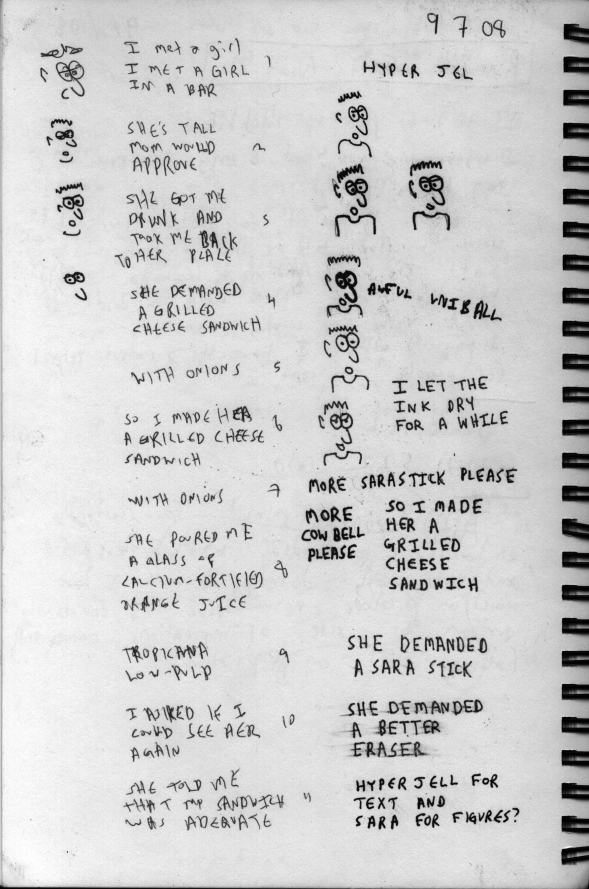 9 7 08
I met a girl
I MET A GIRL 1
IN A BAR
SHE'S TALL
MOM WOULD 2
APPROVE
SHE GOT ME
DRUNK AND 3
TOOK ME BACK
TO HER PLACE
SHE DEMANDED
A GRILLED 4
CHEESE SANDWICH
WITH ONIONS 5
SO I MADE HER
A GRILLED CHEESE 6
SANDWICH
WITH ONIONS 7
SHE POURED ME
A GLASS OF
CALCIUM-FORTIFIED 8
ORANGE JUICE
TROPICANA 9
LOW-PULP
I ASKED IF I
COULD SEE HER 10
AGAIN
SHE TOLD ME
THAT MY SANDWICH 11
WAS ADEQUATE
HYPER JEL
AWFUL UNIBALL
I LET THE
INK DRY
FOR A WHILE
MORE SARASTICK PLEASE
MORE
COWBELL
PLEASE
SO I MADE
HER A
GRILLED
CHEESE
SANDWICH
SHE DEMANDED
A SARA STICK
SHE DEMANDED
A BETTER
ERASER
HYPER JELL FOR
TEXT AND
SARA FOR FIGURES?